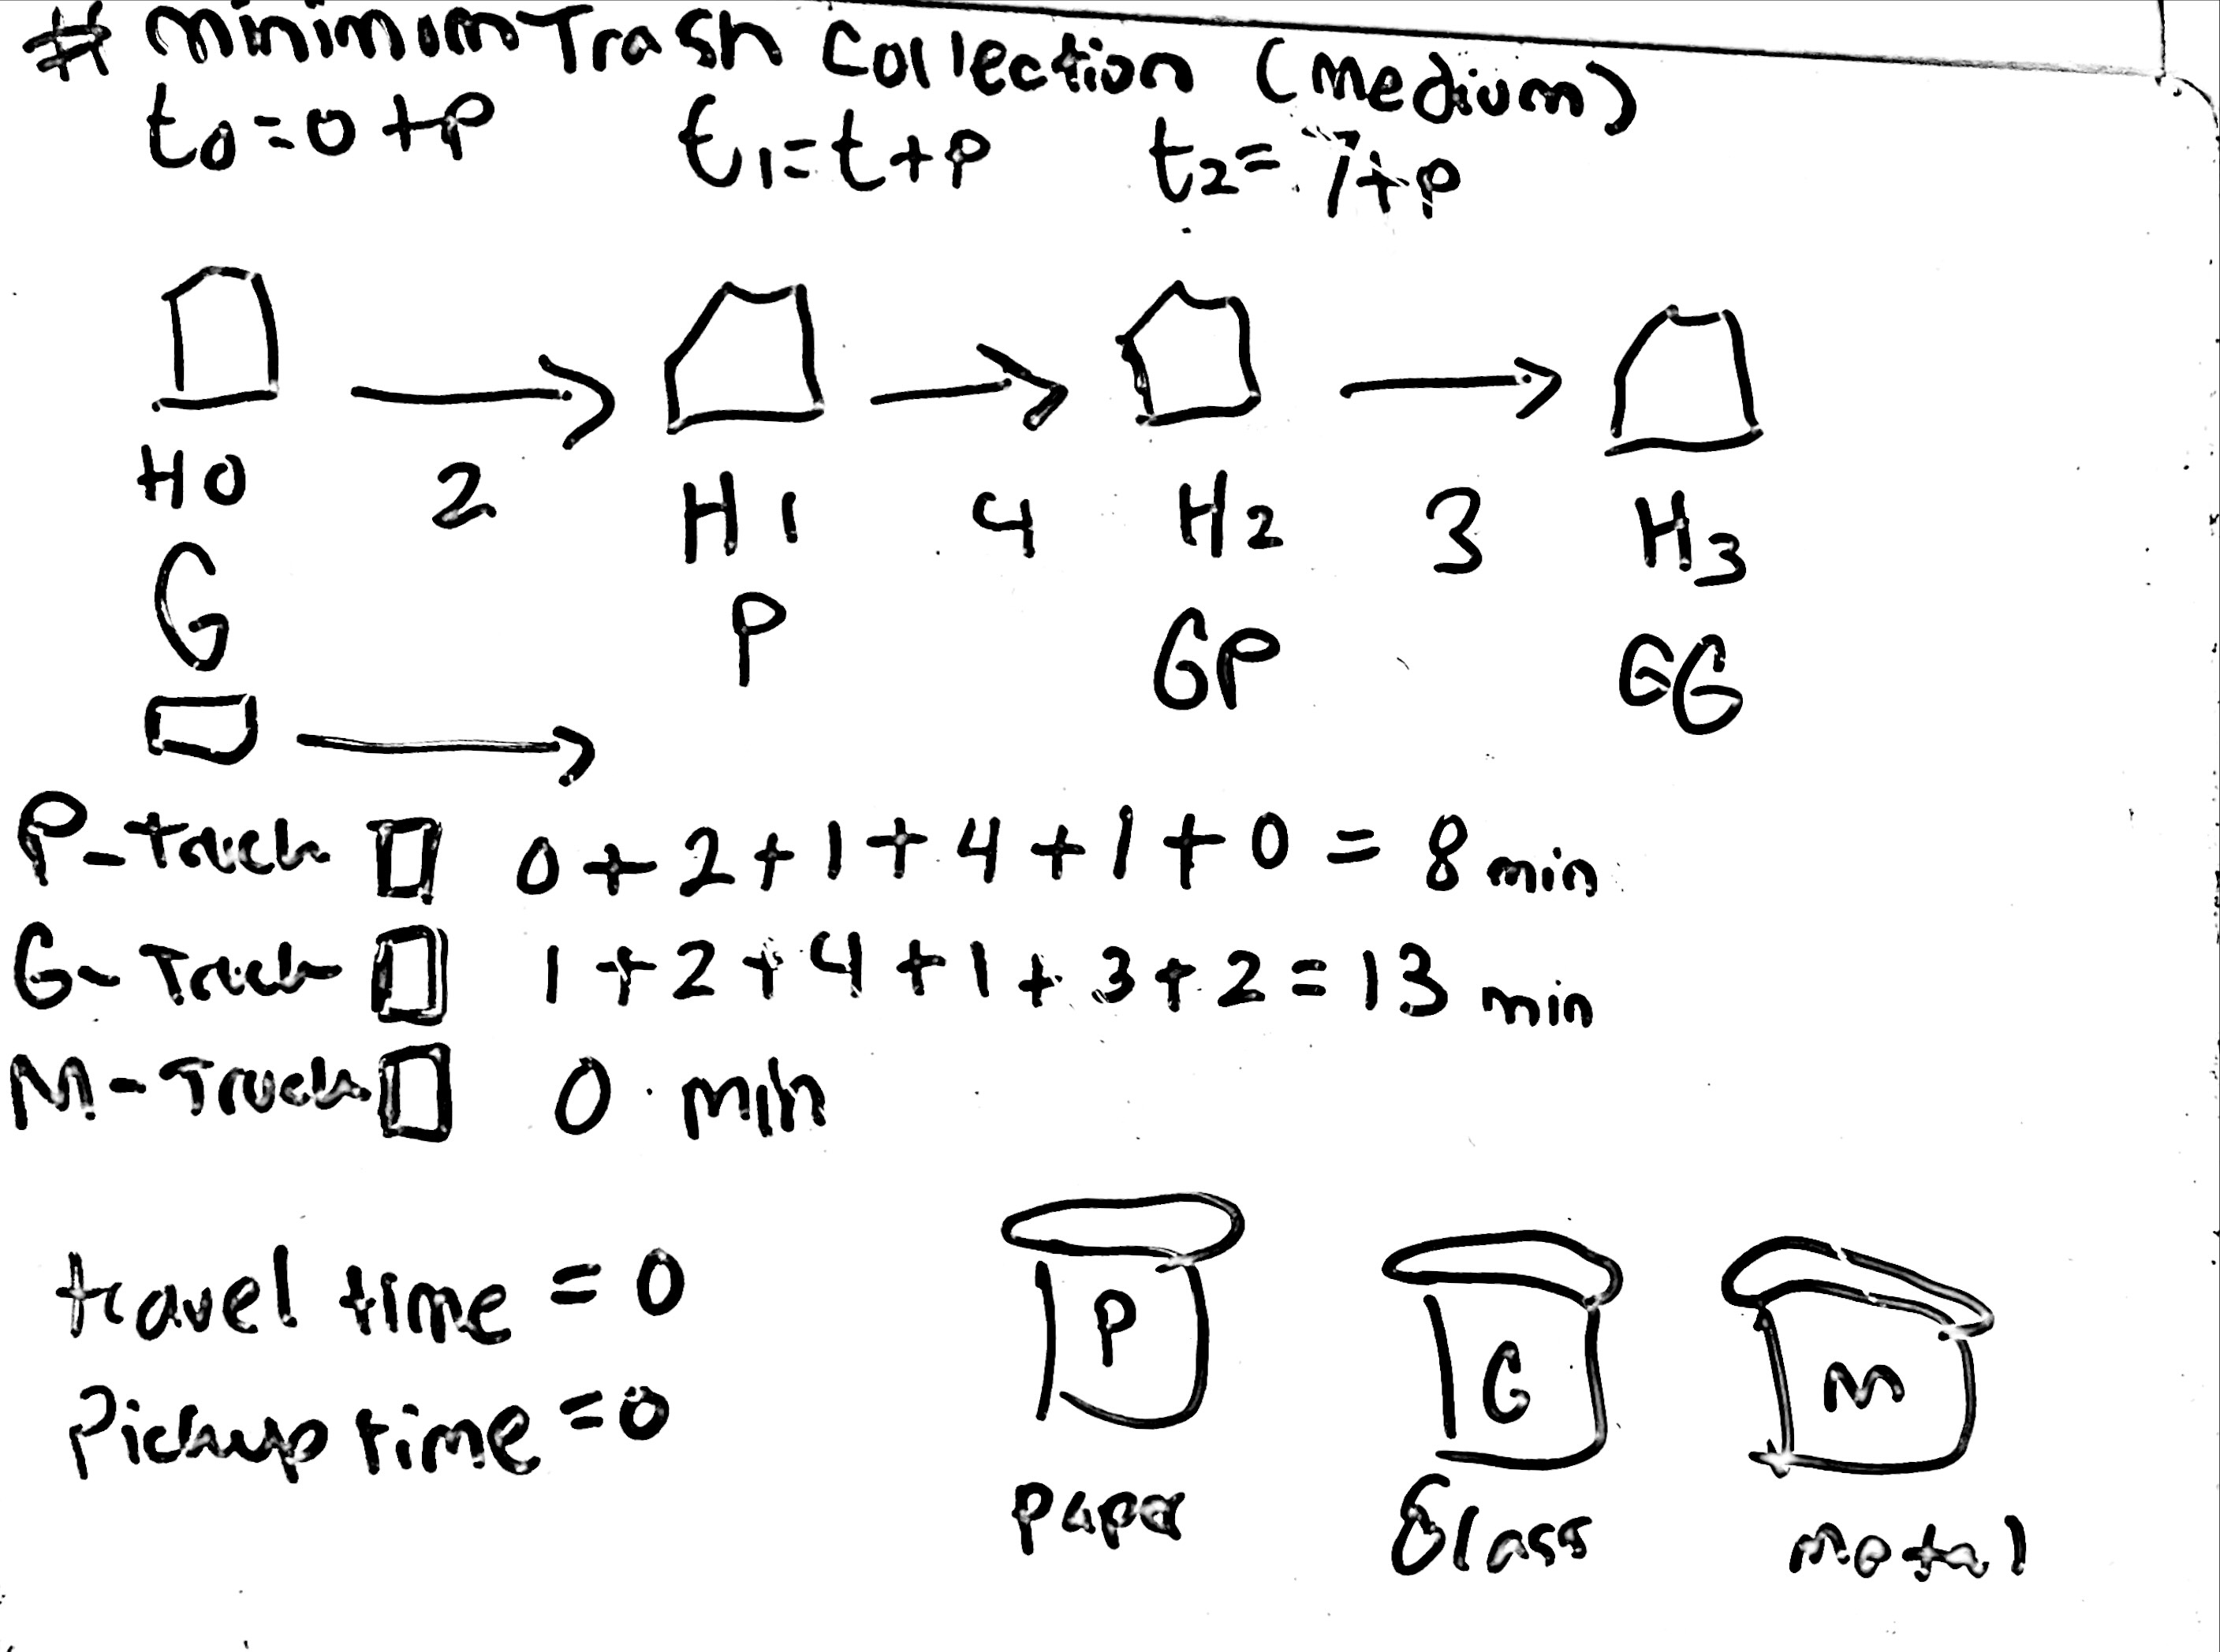 # Minimum Trash Collection (Medium)
t0=0+P t1=t+P t2=7+P
H0 2 H1 4 H2 3 H3
G P GP GG
P-Truck 0+2+1+4+1+0=8 min
G-Truck 1+2+4+1+3+2=13 min
M-Truck 0 min
travel time=0
Pickup time=0
P G M
paper Glass metal